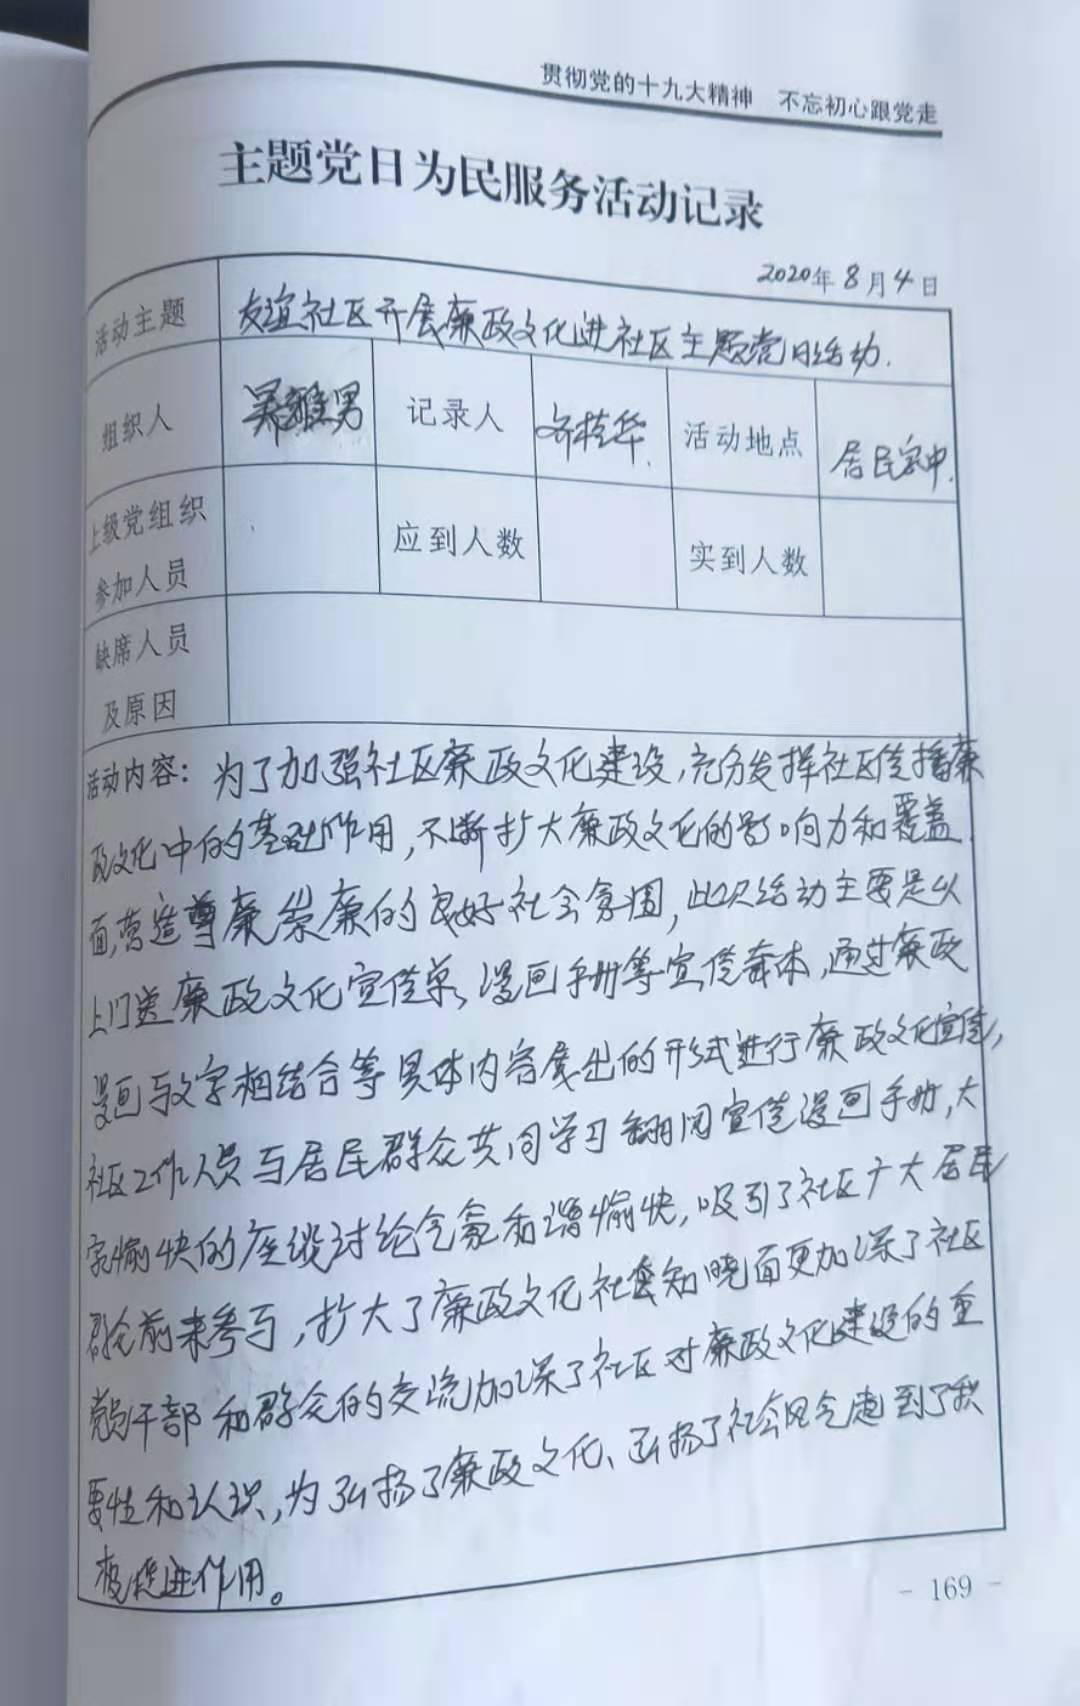 贯彻党的十九大精神 不忘初心跟党走
主题党日为民服务活动记录
2020年8月4日
活动主题 友谊社区开展廉政文化进社区主题党日活动.
组织人 吴雅男 记录人 齐桂华. 活动地点 居民家中.
上级党组织
参加人员 应到人数 实到人数
缺席人员
及原因
活动内容: 为了加强社区廉政文化建设,充分发挥社区传播廉
政文化中的基础作用,不断扩大廉政文化的影响力和覆盖
面,营造尊廉崇廉的良好社会氛围,此次活动主要是以
上门送廉政文化宣传单、漫画手册等宣传载体,通过廉政
漫画与文字相结合等具体内容展出的形式进行廉政文化宣传,
社区工作人员与居民群众共同学习翻阅宣传漫画手册,大
家愉快的座谈讨论气氛和谐愉快,吸引了社区广大居民
群众前来参与,扩大了廉政文化社会知晓面更加深了社区
党员干部和群众的交流加深了社区对廉政文化建设的重
要性和认识,为弘扬了廉政文化、弘扬了社会风气起到了积
极促进作用。
- 169 -